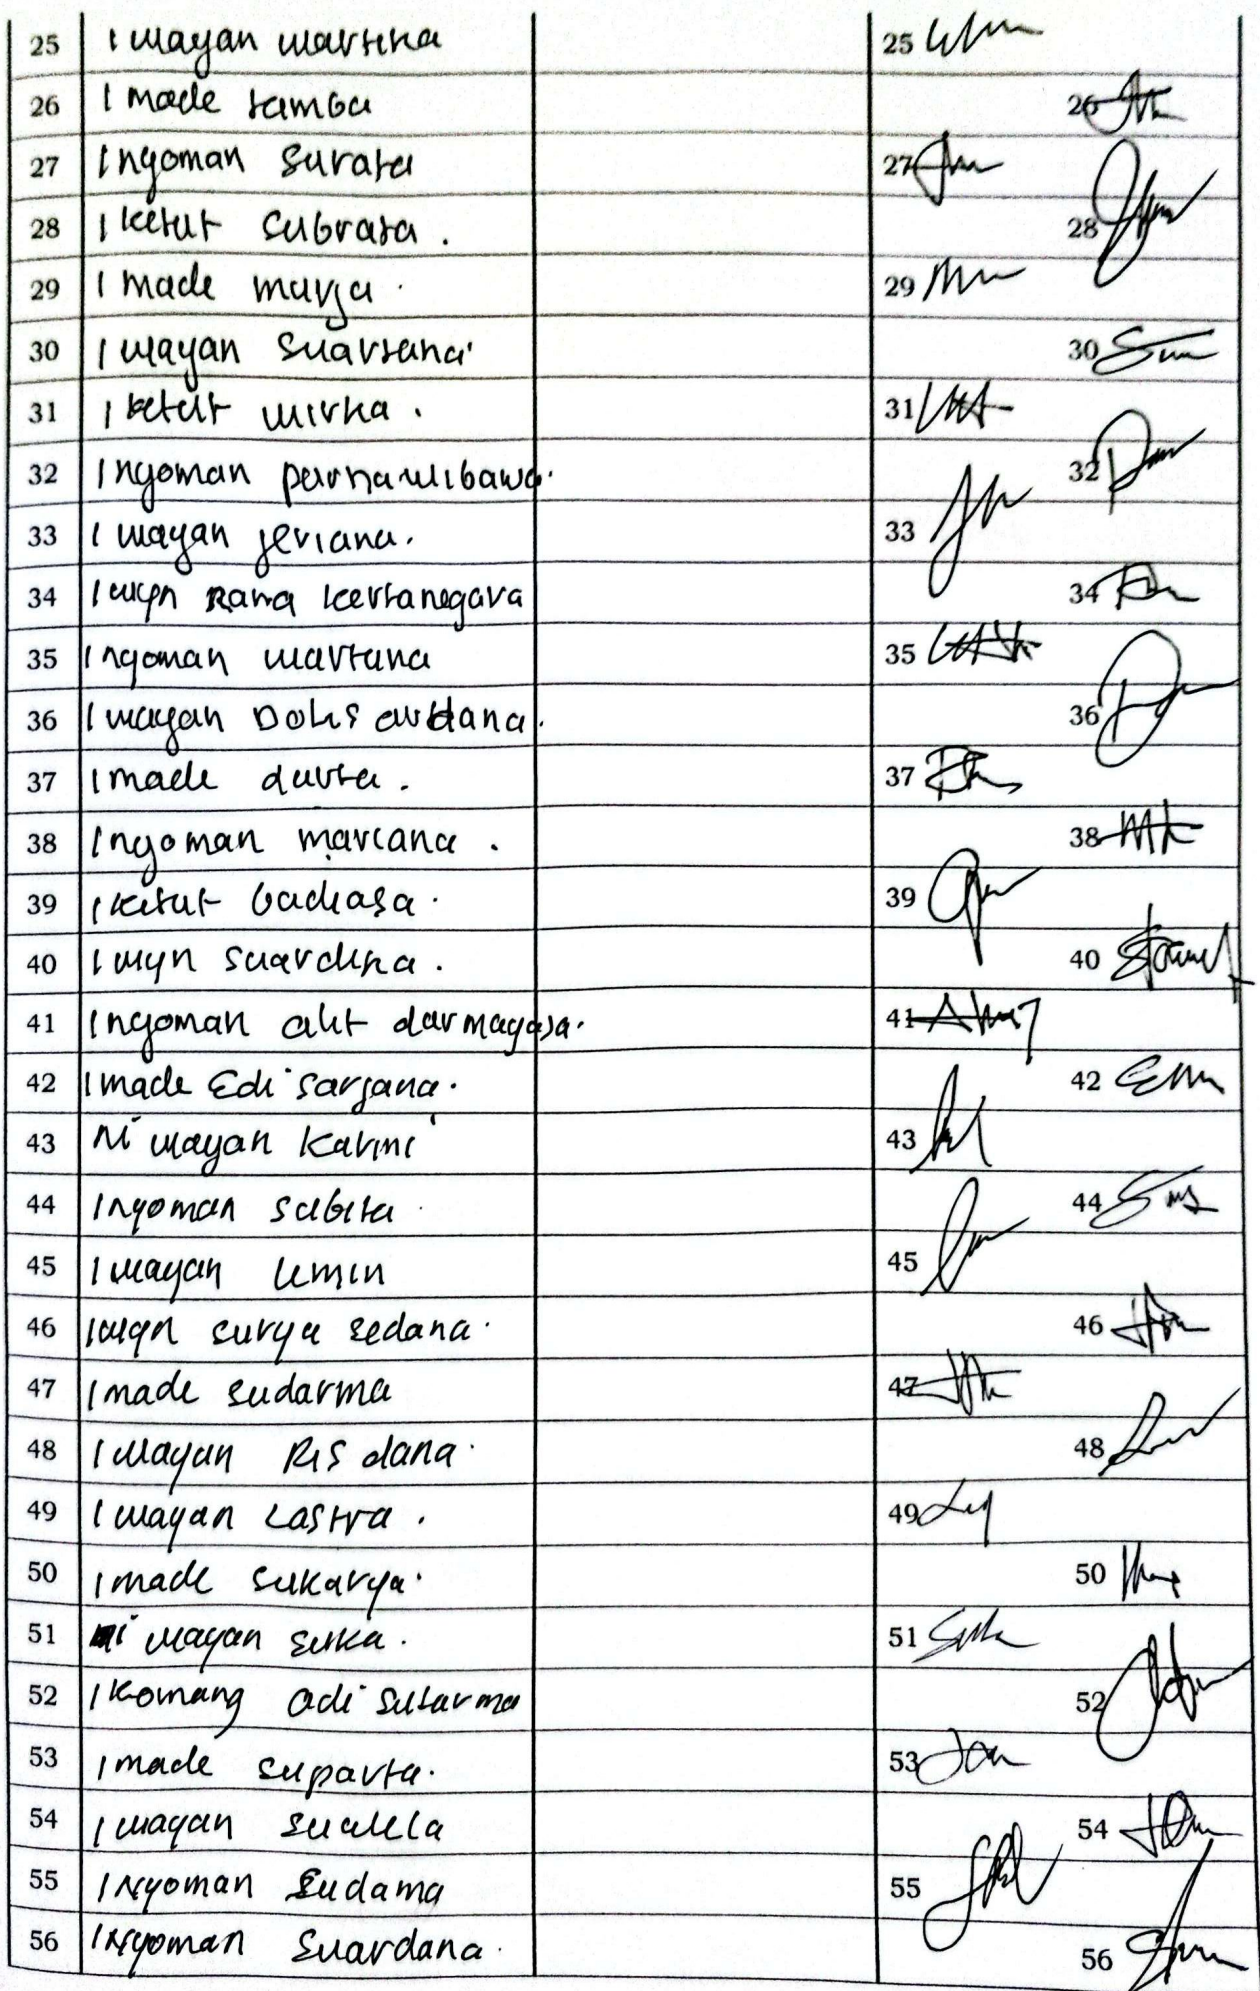 25 I wayan wartika 25
26 I made tamba 26
27 I nyoman Surata 27
28 I ketut Subrata . 28
29 I made murja . 29
30 I wayan Suartana 30
31 I ketut wirka . 31
32 I nyoman purnawibawa. 32
33 I wayan jeriana. 33
34 I wyn Rama kertanegara 34
35 I nyoman wartana 35
36 I wayan ardana. 36
37 I made durta . 37
38 I nyoman marcana . 38
39 I ketut badiasa . 39
40 I wyn suardika . 40
41 I nyoman alit darmayasa. 41
42 I made Edi sarjana. 42
43 Ni wayan Karmi 43
44 I nyoman sabita . 44
45 I wayan 45
46 I wyn surya sedana . 46
47 I made sudarma 47
48 I wayan Ris dana . 48
49 I wayan Lastra . 49
50 I made sukarya . 50
51 Ni wayan suka . 51
52 I Komang adi sutarma 52
53 I made suparta. 53
54 I wayan 54
55 I Nyoman Sudama 55
56 I Nyoman Suardana . 56